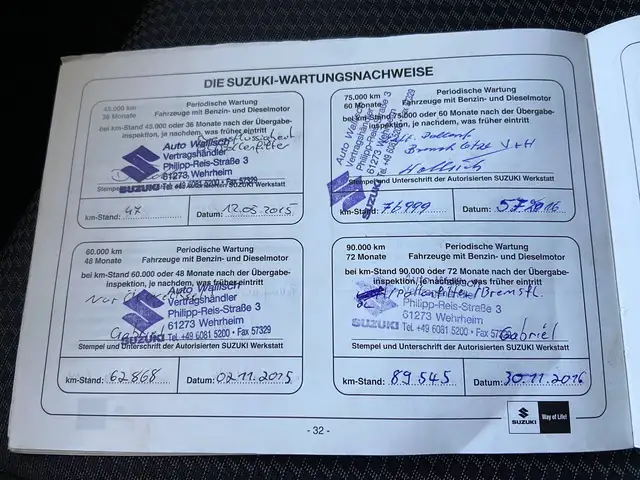 DIE SUZUKI-WARTUNGSNACHWEISE
45.000 km
36 Monate
Periodische Wartung
Fahrzeuge mit Benzin- und Dieselmotor
bei km-Stand 45.000 oder 36 Monate nach der Übergabe-
inspektion, je nachdem, was früher eintritt
Auto Wallisch
Vertragshändler
Philipp-Reis-Straße 3
61273, Wehrheim
SUZUKI Tel. +49 6081 5200 • Fax 57329
Stempel und Unterschrift der Autorisierten SUZUKI Werkstatt
km-Stand: 47
Datum: 12.05.2015
75.000 km
60 Monate
Periodische Wartung
Fahrzeuge mit Benzin- und Dieselmotor
bei km-Stand 75.000 oder 60 Monate nach der Übergabe-
inspektion, je nachdem, was früher eintritt
Auto Wallisch
Vertragshändler
Philipp-Reis-Straße 3
61273, Wehrheim
Tel. +49 6081 5200
SUZUKI
V+H
Stempel und Unterschrift der Autorisierten SUZUKI Werkstatt
km-Stand: 76999
Datum: 5 7 2016
60.000 km
48 Monate
Periodische Wartung
Fahrzeuge mit Benzin- und Dieselmotor
bei km-Stand 60.000 oder 48 Monate nach der Übergabe-
inspektion, je nachdem, was früher eintritt
Nur
Auto Wallisch
Vertragshändler
Philipp-Reis-Straße 3
61273 Wehrheim
Gabriel
SUZUKI Tel. +49 6081 5200 • Fax 57329
Stempel und Unterschrift der Autorisierten SUZUKI Werkstatt
km-Stand: 62868
Datum: 02.11.2015
90.000 km
72 Monate
Periodische Wartung
Fahrzeuge mit Benzin- und Dieselmotor
bei km-Stand 90.000 oder 72 Monate nach der Übergabe-
inspektion, je nachdem, was früher eintritt
/Pollenfilter/Bremsfl.
Philipp-Reis-Straße 3
61273 Wehrheim
SUZUKI Tel. +49 6081 5200 • Fax 57329
Gabriel
Stempel und Unterschrift der Autorisierten SUZUKI Werkstatt
km-Stand: 89545
Datum: 30.11.2016
SUZUKI
Way of Life!
- 32 -